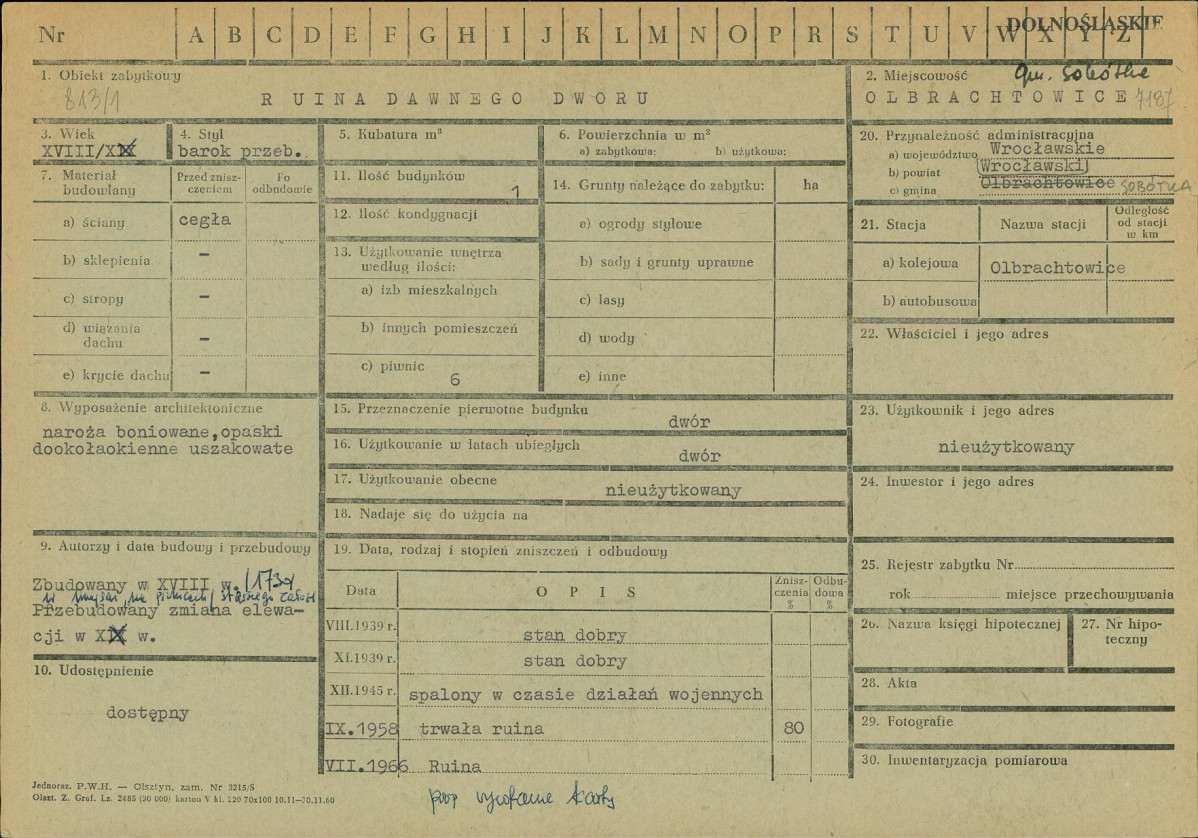 DOLNOŚLĄSKIE
Nr A B C D E F G H I J K L M N O P R S T U V W X Y Z
1. Obiekt zabytkowy
813/1
RUINA DAWNEGO DWORU
2. Miejscowość gm. Sobótka
OLBRACHTOWICE 7187
3. Wiek
XVIII/XIX
4. Styl
barok przeb.
5. Kubatura m³
6. Powierzchnia w m²
a) zabytkowa: b) użytkowa:
20. Przynależność administracyjna
a) województwo Wrocławskie
b) powiat Wrocławski
c) gmina Olbrachtowice SOBÓTKA
7. Materiał budowlany
Przed zniszczeniem
Po odbudowie
a) ściany cegła
b) sklepienia –
c) stropy –
d) wiązania dachu –
e) krycie dachu –
11. Ilość budynków 1
12. Ilość kondygnacji
13. Użytkowanie wnętrza według ilości:
a) izb mieszkalnych
b) innych pomieszczeń
c) piwnic 6
14. Grunty należące do zabytku: ha
a) ogrody stylowe
b) sady i grunty uprawne
c) lasy
d) wody
e) inne
21. Stacja Nazwa stacji Odległość od stacji w km
a) kolejowa Olbrachtowice
b) autobusowa
22. Właściciel i jego adres
8. Wyposażenie architektoniczne
naroża boniowane,opaski
dookołaokienne uszakowate
15. Przeznaczenie pierwotne budynku
dwór
16. Użytkowanie w latach ubiegłych
dwór
17. Użytkowanie obecne
nieużytkowany
18. Nadaje się do użycia na
23. Użytkownik i jego adres
nieużytkowany
24. Inwestor i jego adres
9. Autorzy i data budowy i przebudowy
Zbudowany w XVIII w. /1739
w miejscu na piwnicach starszego
Przebudowany zmiana elewa-
cji w XIX w.
10. Udostępnienie
dostępny
19. Data, rodzaj i stopień zniszczeń i odbudowy
Data OPIS Zniszczenia % Odbudowa %
VIII.1939 r. stan dobry
XI.1939 r. stan dobry
XII.1945 r. spalony w czasie działań wojennych
IX.1958 trwała ruina 80
VII.1966 Ruina
25. Rejestr zabytku Nr
rok miejsce przechowywania
26. Nazwa księgi hipotecznej
27. Nr hipoteczny
28. Akta
29. Fotografie
30. Inwentaryzacja pomiarowa
Jednoraz. P.W.H. — Olsztyn, zam. Nr 3215/S
Olszt. Z. Graf. Lz. 2485 (30 000) karton V kl. 220 70x100 10.11—30.11.60